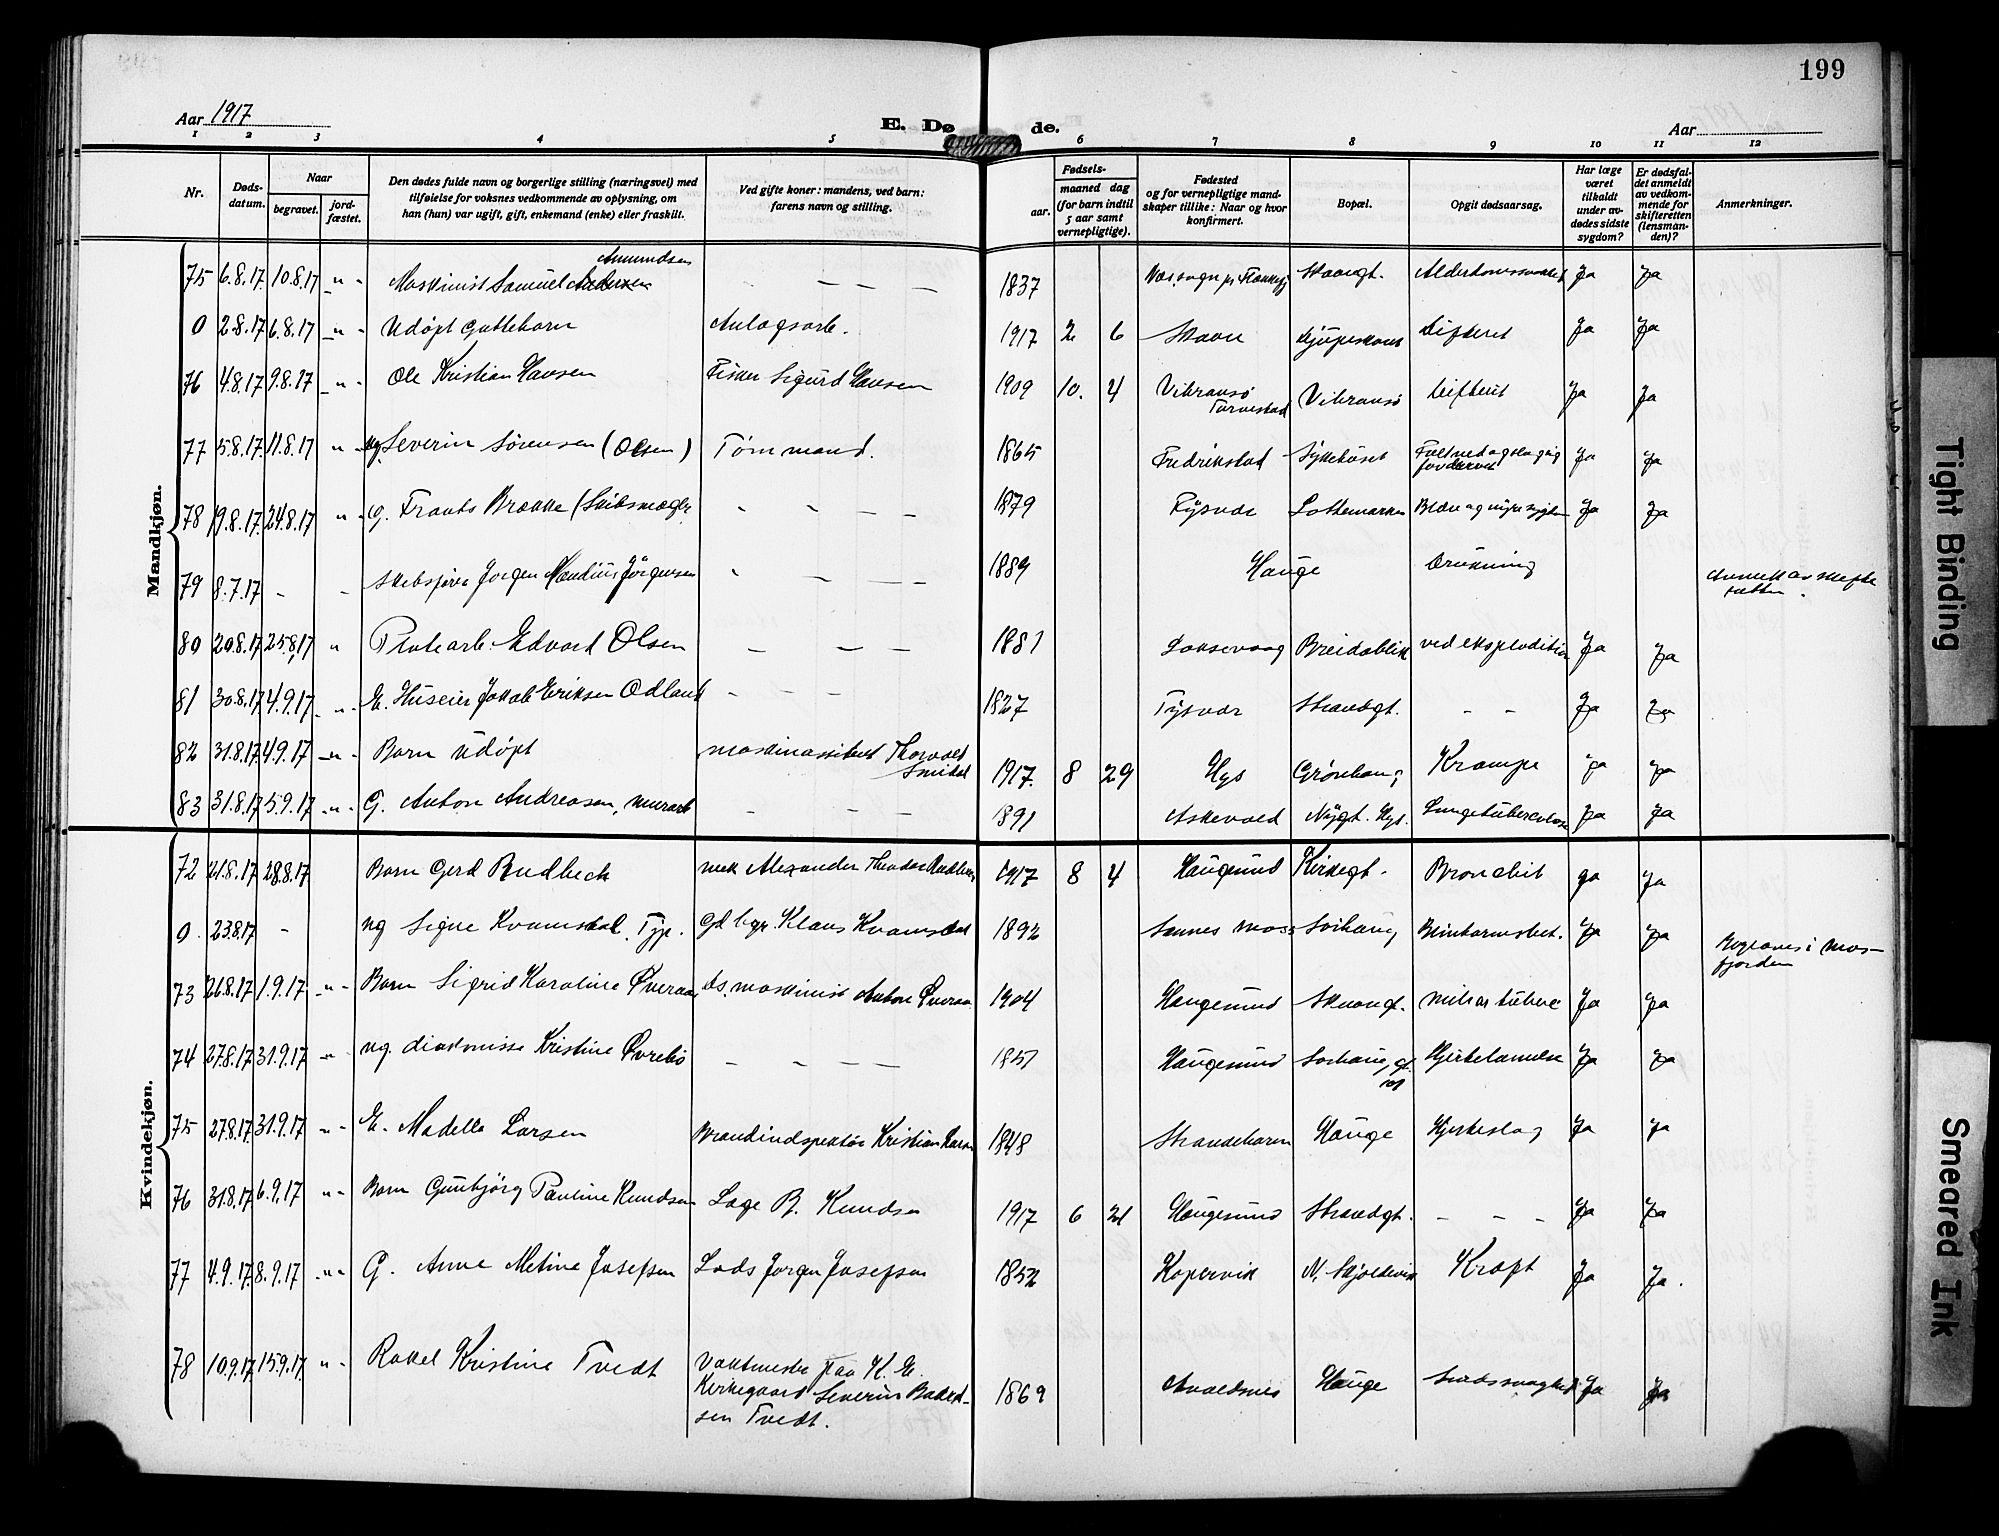 199
Aar 1917
E. Dø de.
Aar
1 2 3 4 5 6 7 8 9 10 11 12
Nr.
Døds-
datum.
Naar
begravet.
jord-
fæstet.
Den dødes fulde navn og borgerlige stilling (næringsvei) med
tilføielse for voksnes vedkommende av oplysning, om
han (hun) var ugift, gift, enkemand (enke) eller fraskilt.
Ved gifte koner: mandens, ved barn:
farens navn og stilling.
Fødsels-
aar.
maaned dag
(for barn indtil
5 aar samt
vernepligtige).
Fødested
og for vernepligtige mand-
skaper tillike: Naar og hvor
konfirmert.
Bopæl.
Opgit dødsaarsag.
Har læge
været
tilkaldt
under av-
dødes sidste
sygdom?
Er dødsfal-
det anmeldt
av vedkom-
mende for
skifteretten
(lensman-
den)?
Anmerkninger.
Mandkjøn.
Amundsen
75 6.8.17 10.8.17 -"- Maskinist Samuel - - - - 1837 Ja Ja
0 2.8.17 6.8.17 -"- Udøpt guttebarn Anlagsarb. 1917 2 6 Skaare Difterit Ja Ja
76 4.8.17 9.8.17 -"- Ole Kristian Hansen Fisker Sigurd Hansen 1909 10. 4 Vibransø
Torvestad Vibransø Difterit Ja Ja
77 5.8.17 11.8.17 "- ug Severin Sørensen (Olsen) Tømmand. 1865 Fredrikstad Sykehuset Falt ned og slog sig
fordervet Ja Ja
78 19.8.17 24.8.17 "- g. Frants Brekke (Skibsmegler - - - - 1879 Tysvær Lottemarken Ja Ja
79 8.7.17 - - Skibsfører Jørgen Jørgensen - - - - 1889 Hauge Drukning
80 20.8.17 25.8.17 " Edvart Olsen - - - 1881 Laksevaag Breidablik ved eksplodition Ja Ja
81 30.8.17 4.9.17 -"- E. Huseier Jakob Eriksen Odland - - - - 1827 Tysvær Strandgt. - - Ja Ja
82 31.8.17 4.9.17 -"- Barn udøpt maskinassistent Thorvald
Smidal 1917. 8 29 Hgs Grønhaug Krampe Ja Ja
83 31.8.17 5.9.17 -"- G. Anton Andreasen, murarb - - - 1891 Askevold Nygt. Hgs. Lungetuberculose Ja Ja
Kvindekjøn.
72 21.8.17 28.8.17 Barn Gerd Rudbeck mek Alexander Theodor Rudbeck 1917 8 4 Haugesund Kirkegt. Bronchit Ja Ja
0. 23.8.17 - ug Signe Kvamsdal. Tjp. Gdbgr. Klaus Kvamsdal 1892 Sannes Mos: Sørhaug Ja Ja Begraves i Mos-
fjorden
73 26.8.17 1.9.17 -"- Barn Sigrid Karoline Øveraas ds. maskinist Anton Øveraas 1904 Haugesund miliar tuberc Ja Ja
74 27.8.17 31.9.17 -"- ug. diakonisse Kristine Øvrebø - - - - 1851 Haugesund Sørhaug gt.
101 Hjertelamelse Ja Ja
75 27.8.17 31.9.17 "- E. Madella Larsen Brandindspektør Kristian Larsen 1848 Strandebarm Hauge Hjerteslag Ja Ja
76 31.8.17 6.9.17 "- Barn Gunbjørg Pauline Knudsen Læge B. Knudsen 1917 6 21 Haugesund Strandgt. - - - Ja Ja
77 4.9.17 8.9.17 -"- G. Anne Metine Josefsen Lods Jørgen Josefsen 1852 Kopervik N. Skjoldevik Kræft Ja Ja.
78 10.9.17 15.9.17 "- Rakel Kristine Tvedt Vaktmester paa K. E.
Kirkegaard Severin
sen Tvedt. 1869 Avaldsnes Hauge Ja Ja
Tight Binding
Smeared Ink